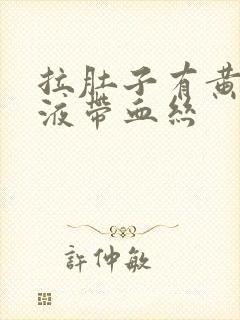 拉肚子有黄
液帶血絲
許仲敏